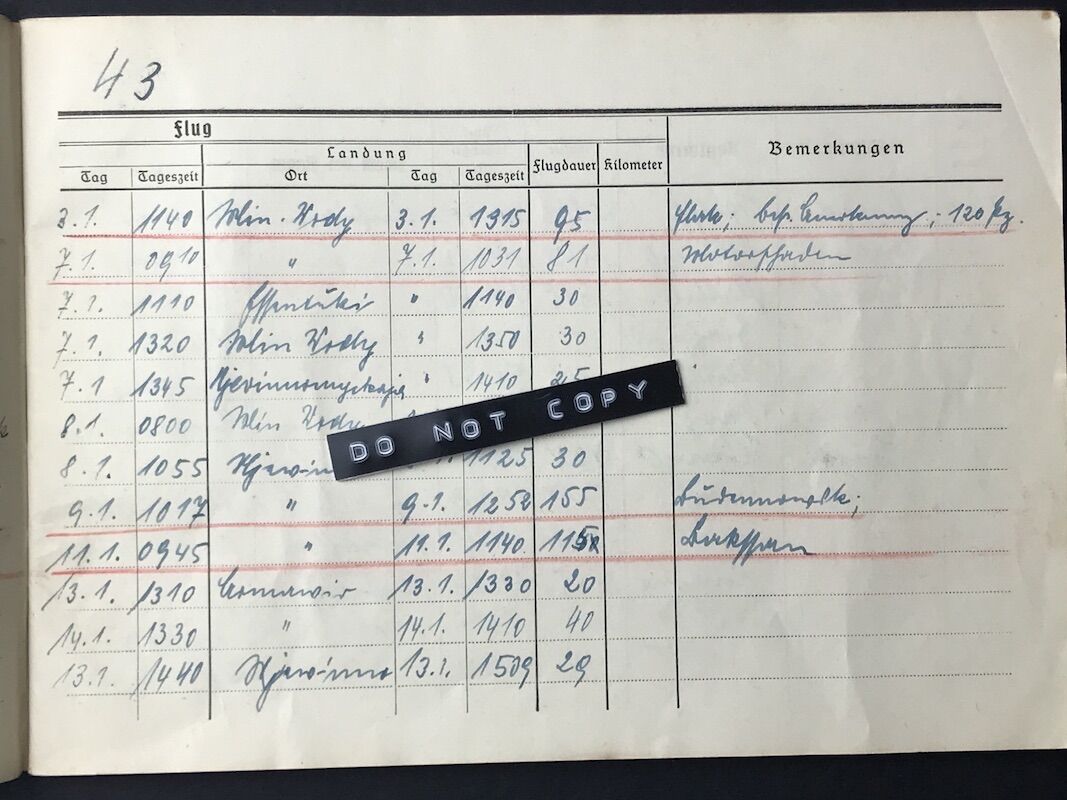 43
Flug
Landung
Bemerkungen
Tag Tageszeit Ort Tag Tageszeit Flugdauer Kilometer
3.1. 1140 Min. Wody 3.1. 1315 95 Flak; bes. ; 120
7.1. 0910 " 7.1. 1031 81 Motorschaden
7.1. 1110 Essentuki " 1140 30
7.1. 1320 Min Wody " 1350 30
7.1 1345 " 1410 25
8.1. 0800 Min Wody
8.1. 1055 1125 30
9.1. 1017 " 9.1. 1252 155 Budennowsk;
11.1. 0945 " 11.1. 1140 115 Bakssan
13.1. 1310 Armawir 13.1. 1330 20
14.1. 1330 " 14.1. 1410 40
13.1. 1440 13.1. 1509 29
DO NOT COPY